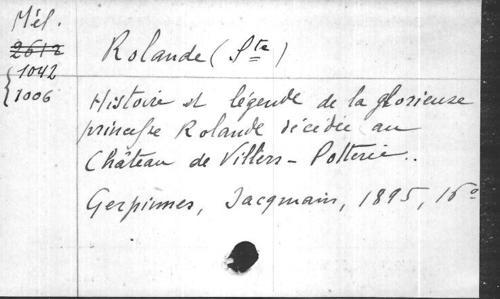 Mél.
2612
1042
1006
Rolande (Ste)
Histoire et légende de la glorieuse
princesse Rolande décédée au
Château de Villers-Potterie..
Gerpinnes, Jacqmain, 1895, 16o